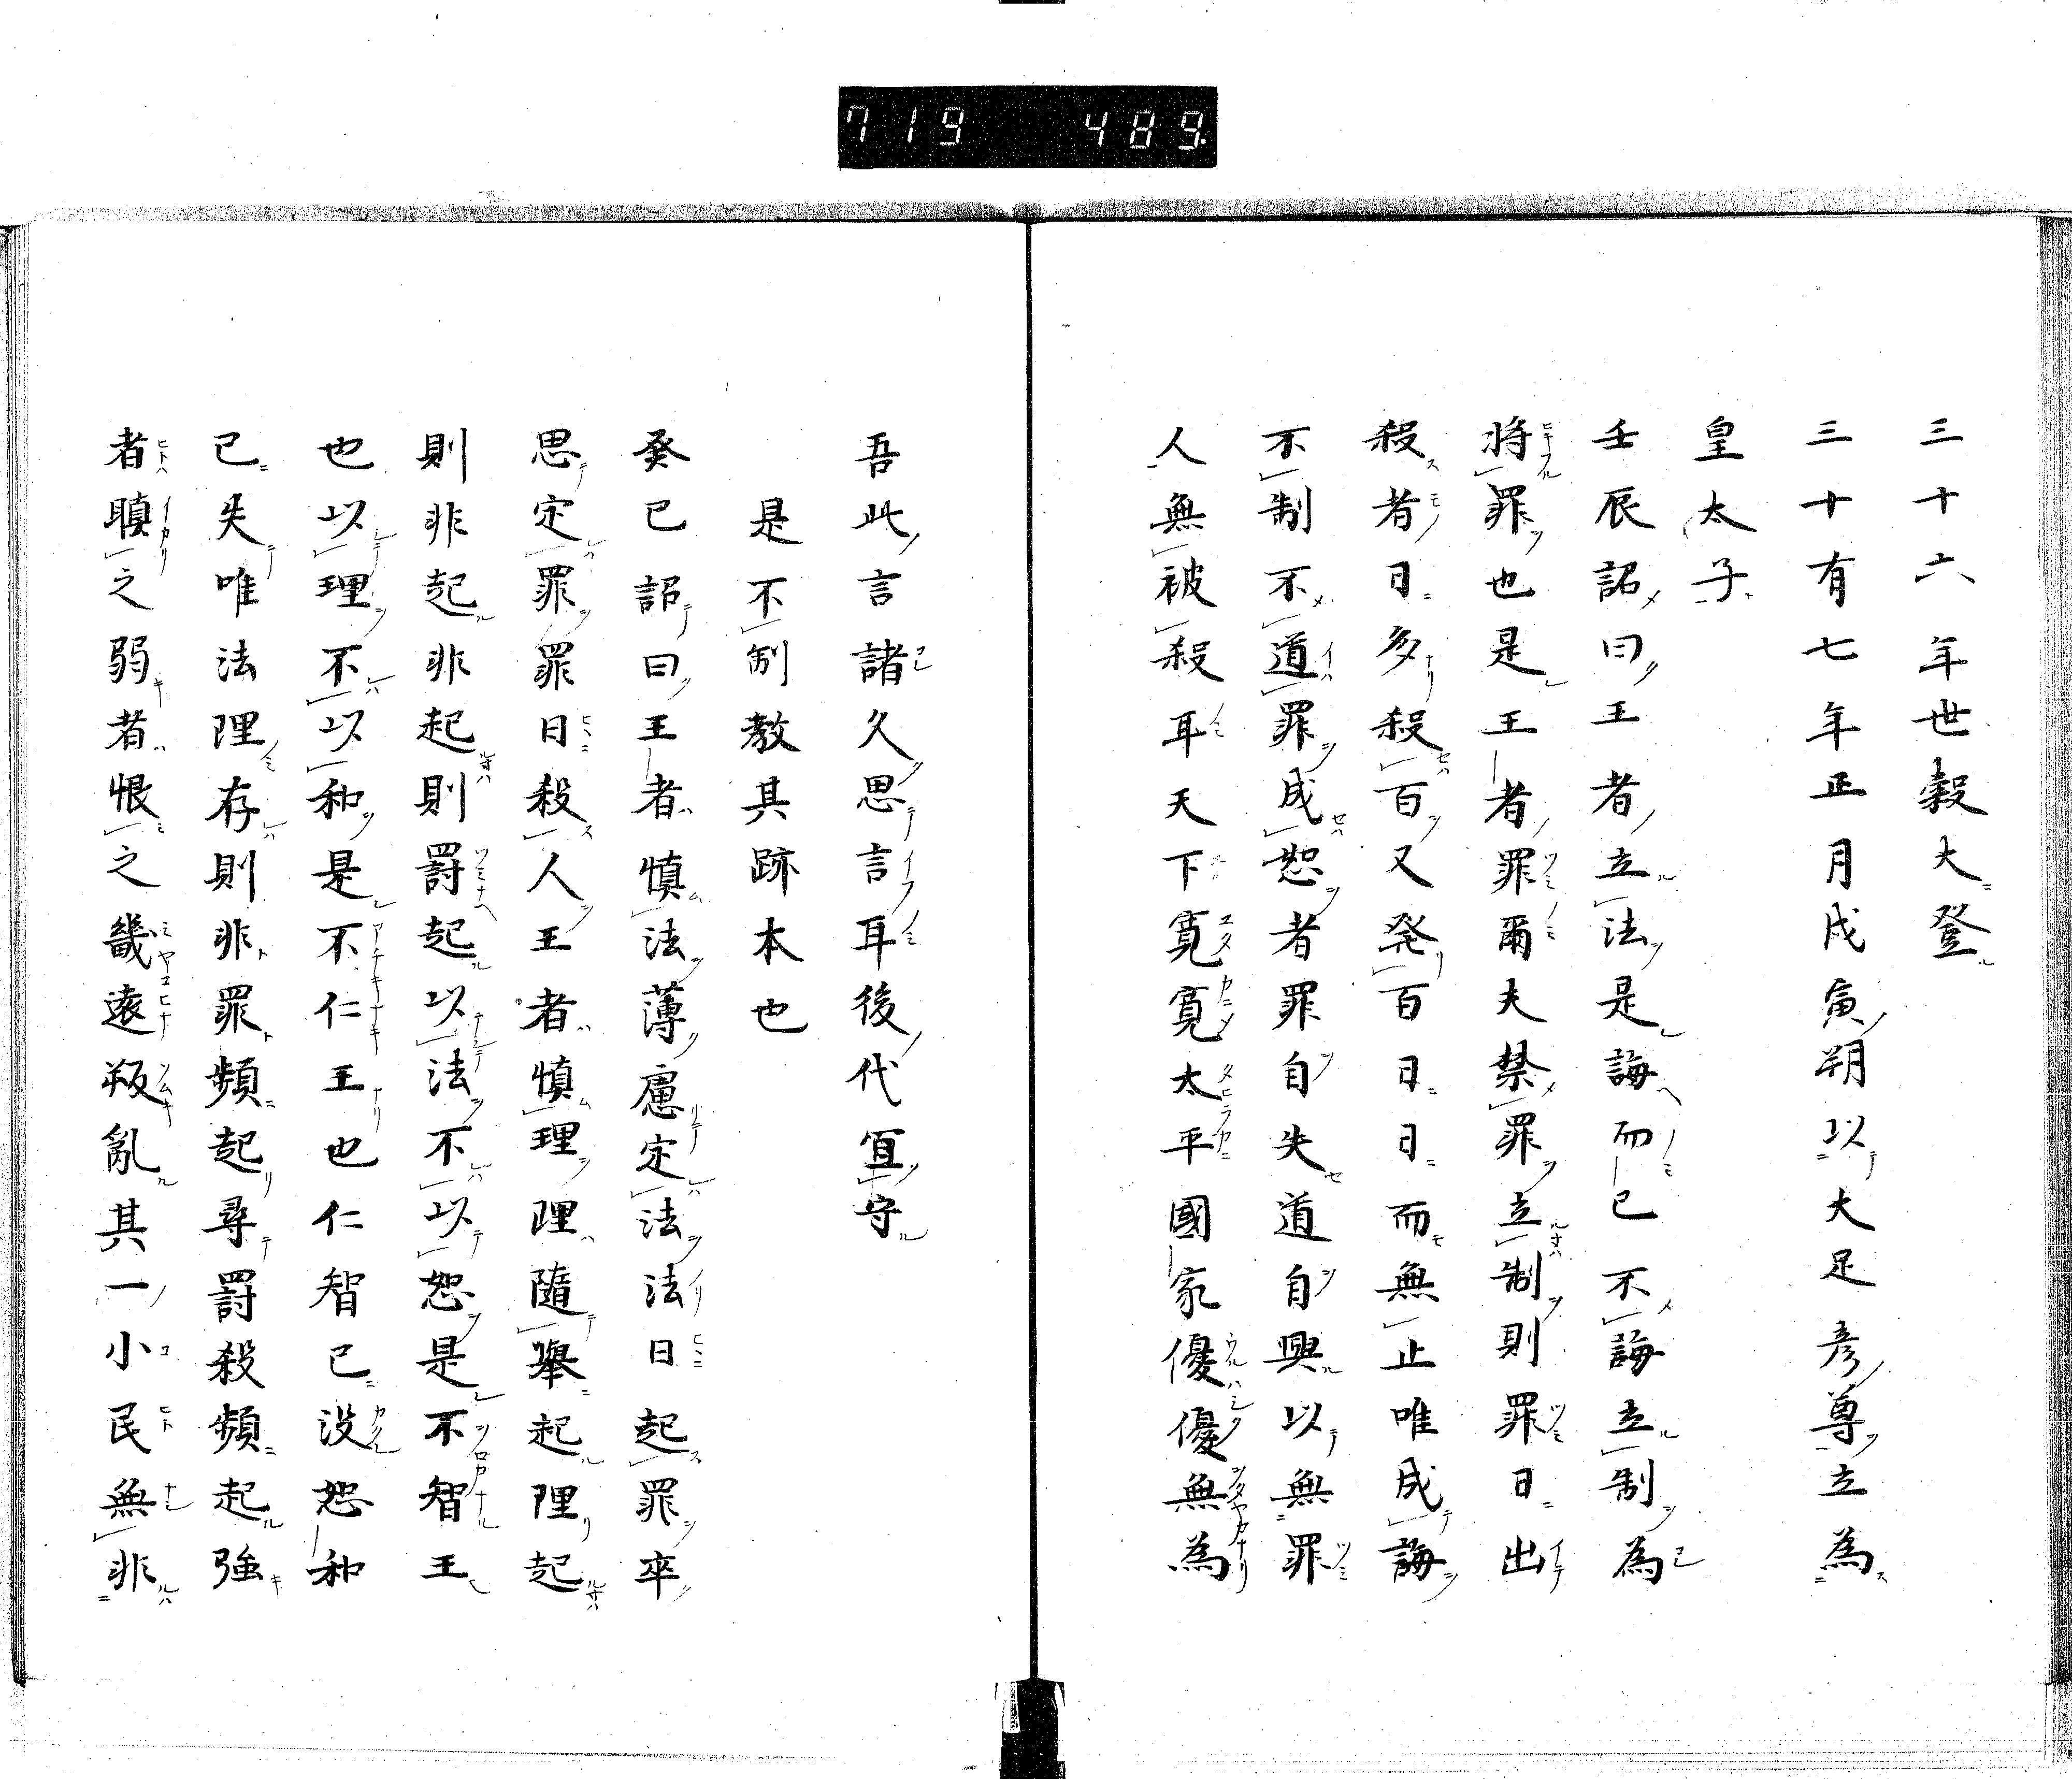 719 489.
三十六年世穀大登
三十有七年正月戊寅朔以大足彦尊立為
皇太子
壬辰詔曰王者立法是誨而已不誨立制為
将罪也是王者罪爾夫禁罪立制則罪日出
殺者日多殺百又発百日日而無止唯成誨
不制不道罪成恕者罪自失道自興以無罪
人無被殺耳天下寛寛太平國家優優無為
吾此言諸久思言耳後代宜守
是不制教其跡本也
癸巳詔曰王者慎法薄慮定法法日起罪卒
思定罪罪日殺人王者慎理理隨舉起理起
則非起非起則罸起以法不以恕是不智王
也以理不以和是不仁王也仁智已没恕和
已失唯法理存則非罪頻起尋罸殺頻起強
者瞋之弱者恨之畿遠叛亂其一小民無非